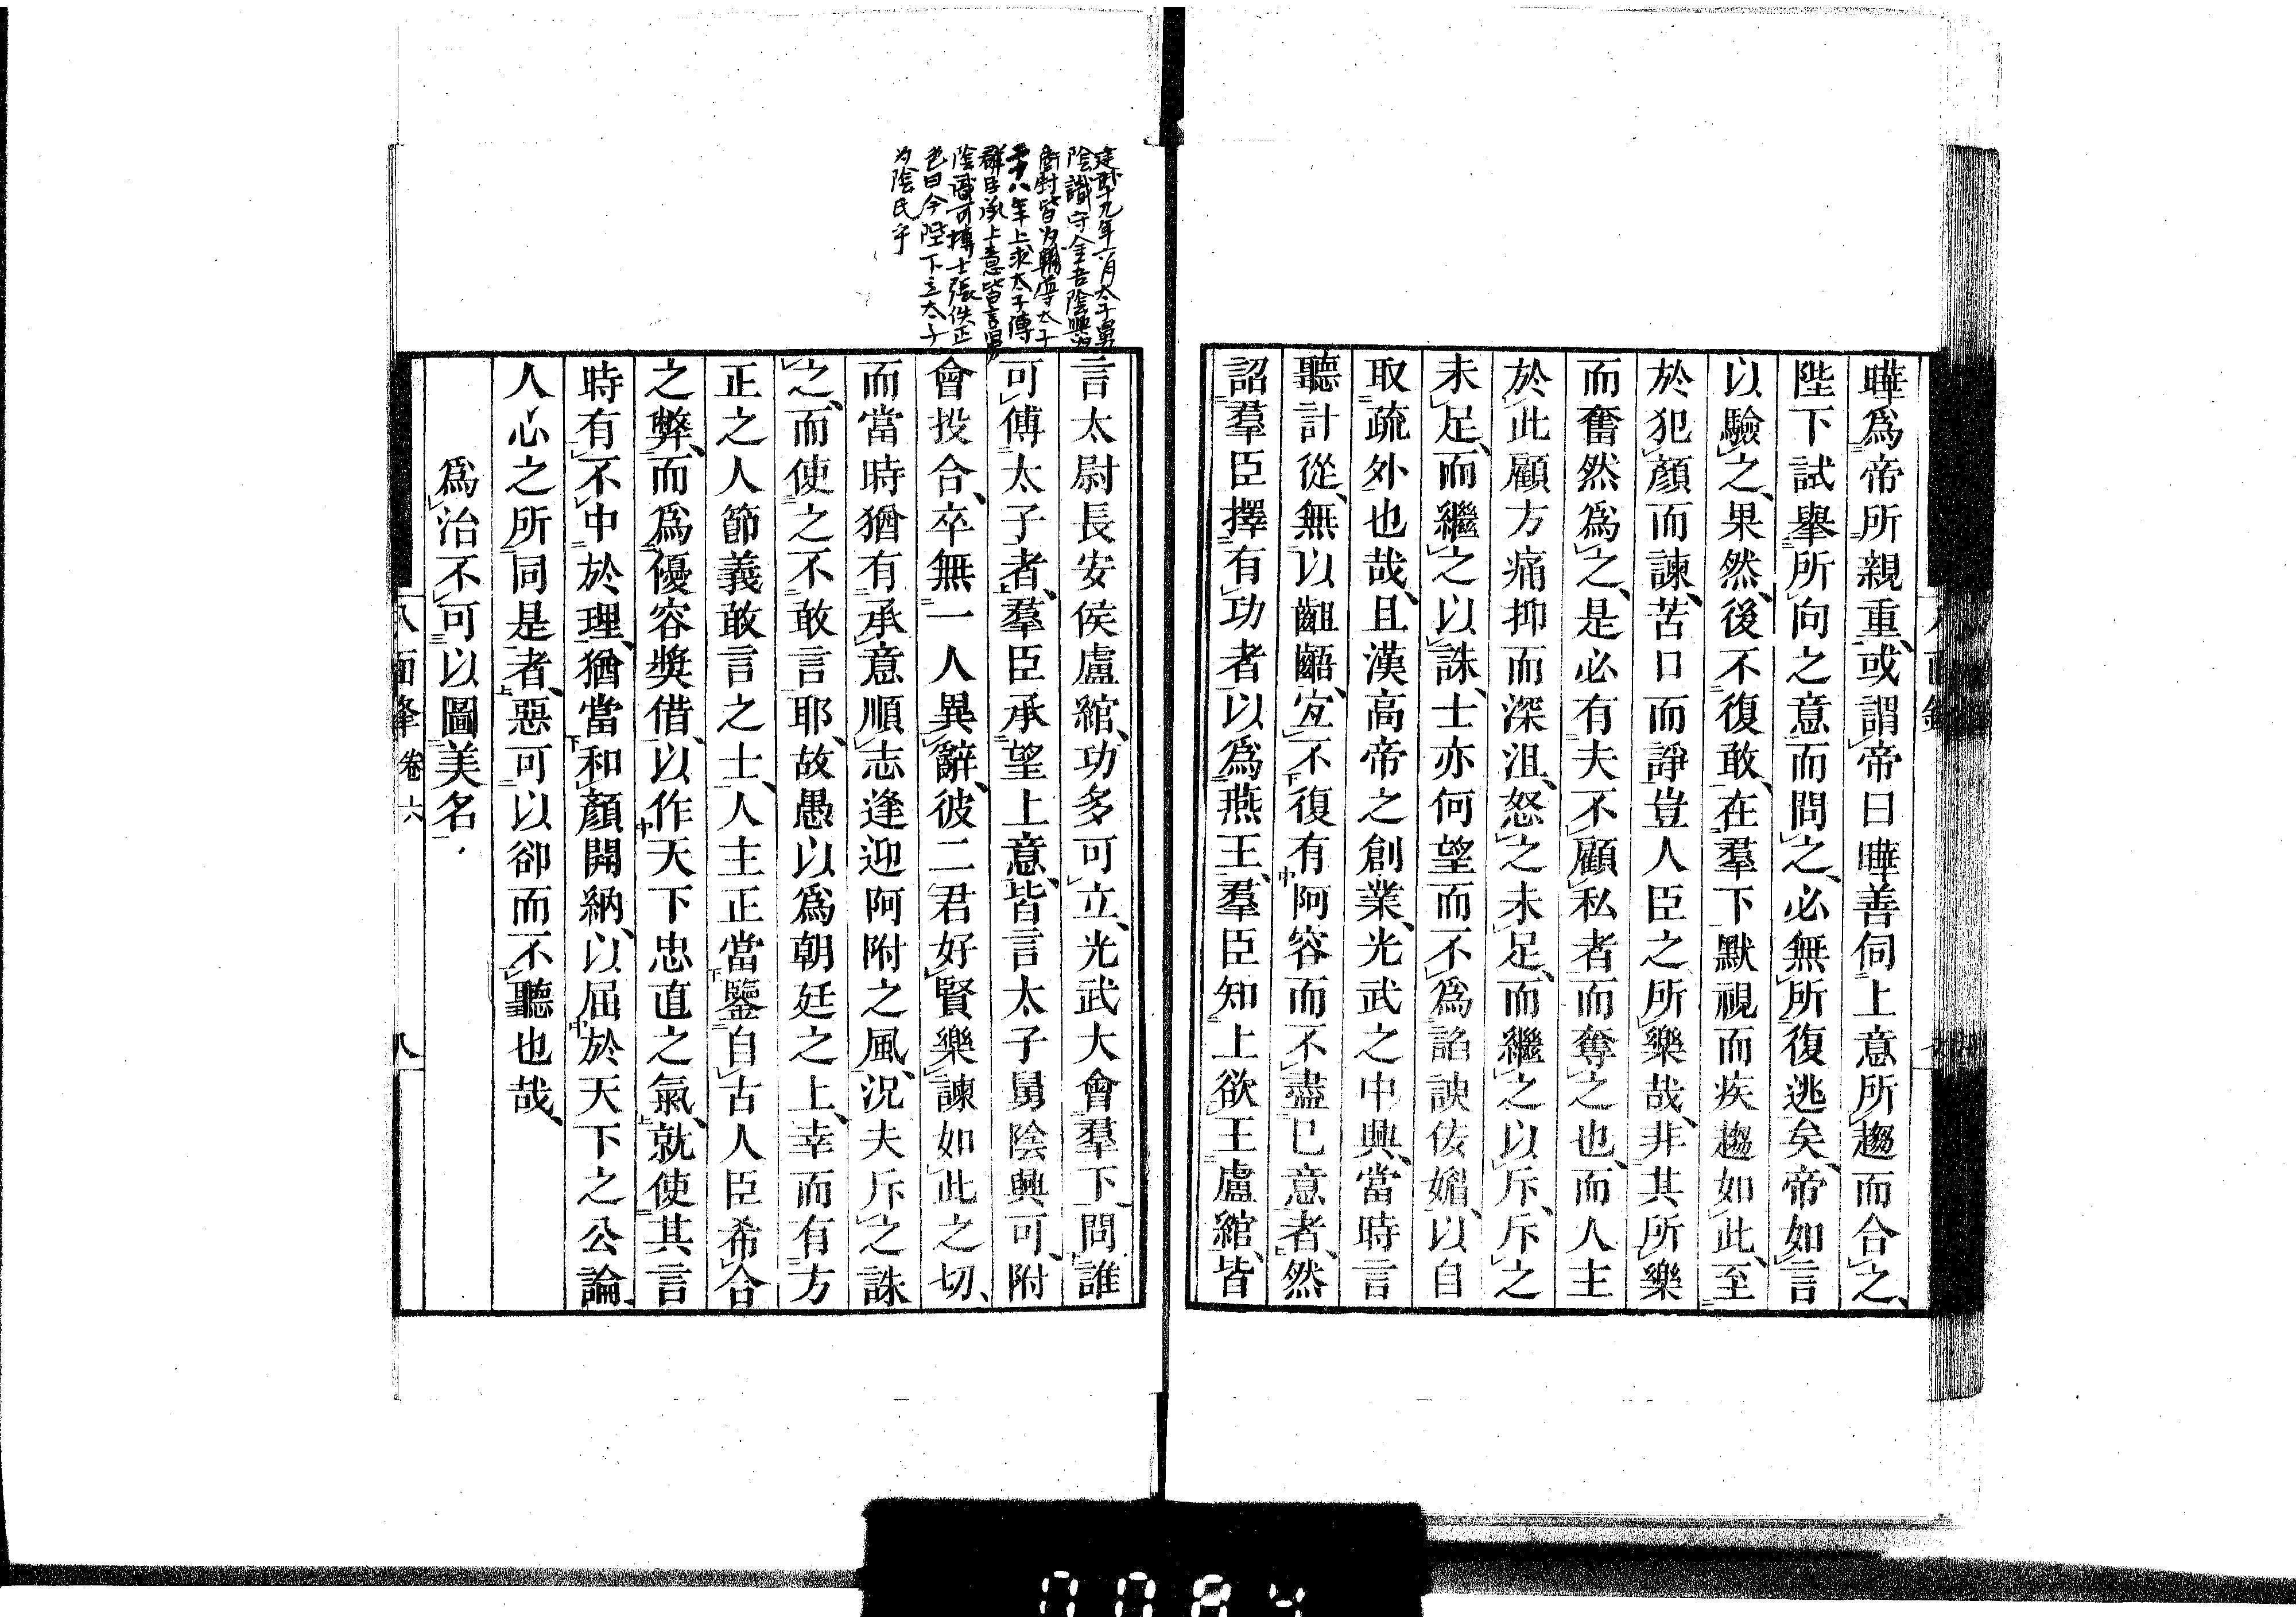 曄爲帝所親重、或謂帝曰曄善伺上意所趨而合之、
陛下試擧所向之意而問之、必無所復逃矣、帝如言
以驗之、果然、後不復敢、在羣下默視而疾趨如此、至
於犯顏而諫、苦口而諍豈人臣之所樂哉、非其所樂
而奮然爲之、是必有夫不顧私者而奪之也、而人主
於此顧方痛抑而深沮、怒之未足、而繼之以斥、斥之
未足、而繼之以誅、士亦何望而不爲諂諛佞媚、以自
取疏外也哉、且漢高帝之創業、光武之中興、當時言
聽計從、無以齟齬、宐不復有阿容而不盡已意者、然
詔羣臣擇有功者以爲燕王、羣臣知上欲王盧綰、皆
言太尉長安侯盧綰、功多可立、光武大會羣下、問誰
可傅太子者、羣臣承望上意、皆言太子舅陰興可、附
會投合、卒無一人異辭、彼二君好賢樂諫如此之切、
而當時猶有承意順志逢迎阿附之風、況夫斥之誅
之、而使之不敢言耶、故愚以爲朝廷之上、幸而有方
正之人節義敢言之士、人主正當鑒自古人臣希合
之弊、而爲優容奬借、以作天下忠直之氣、就使其言
時有不中於理、猶當和顏開納、以屈於天下之公論、
人心之所同是者、惡可以卻而不聽也哉、
爲治不可以圖美名
八面峰 卷六 八
十九年六月太子舅
陰識守金吾陰興
皆为輔導太子
廿八年上求太子傅
群臣承上意皆言舅
陰識可博士張佚正
色曰今陛下立太子
为陰氏乎